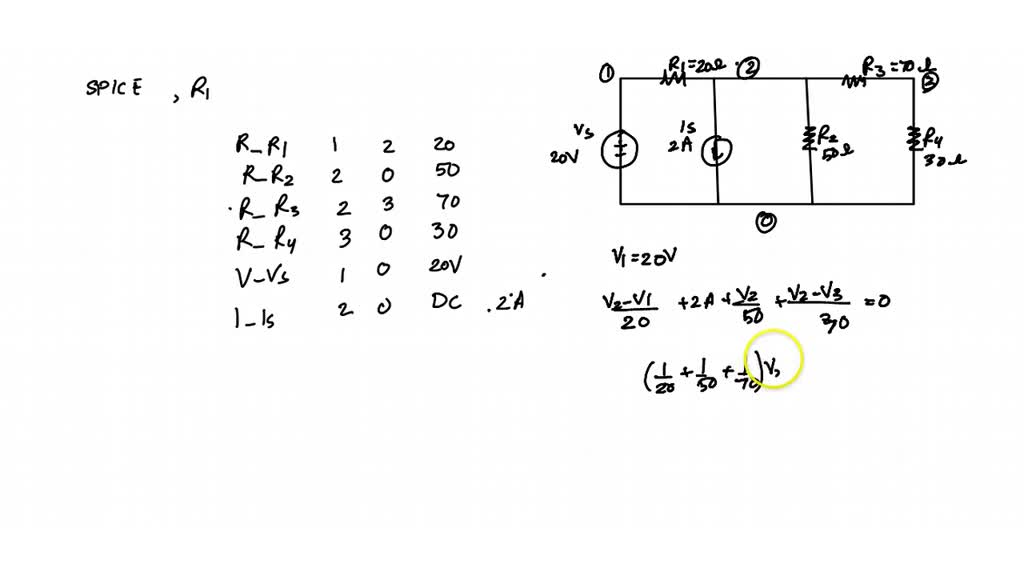 SPICE , R1
R_R1 1 2 20
R_R2 2 0 50
R_R3 2 3 70
R_R4 3 0 30
V_Vs 1 0 20V
I_Is 2 0 DC 2A
① R1=20Ω ② R3=70Ω ③
Vs 20V
Is 2A
R2 50Ω
R4 30Ω
⓪
V1=20V
(V2-V1)/20 +2A +V2/50 +(V2-V3)/30 =0
(1/20 +1/50 +1/70)V